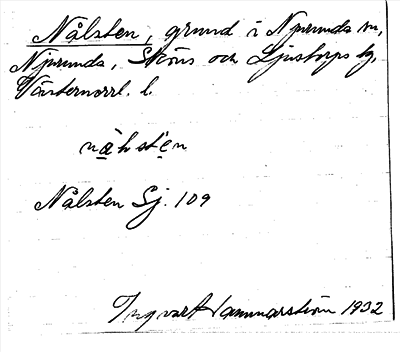 Nålsten, grund i Njurunda sn,
Njurunda, Sköns och Ljustorps tg,
Västernorrl. l.
nå̱lstẹn
Nålsten Sj. 109
Ingvar Hammarström 1932